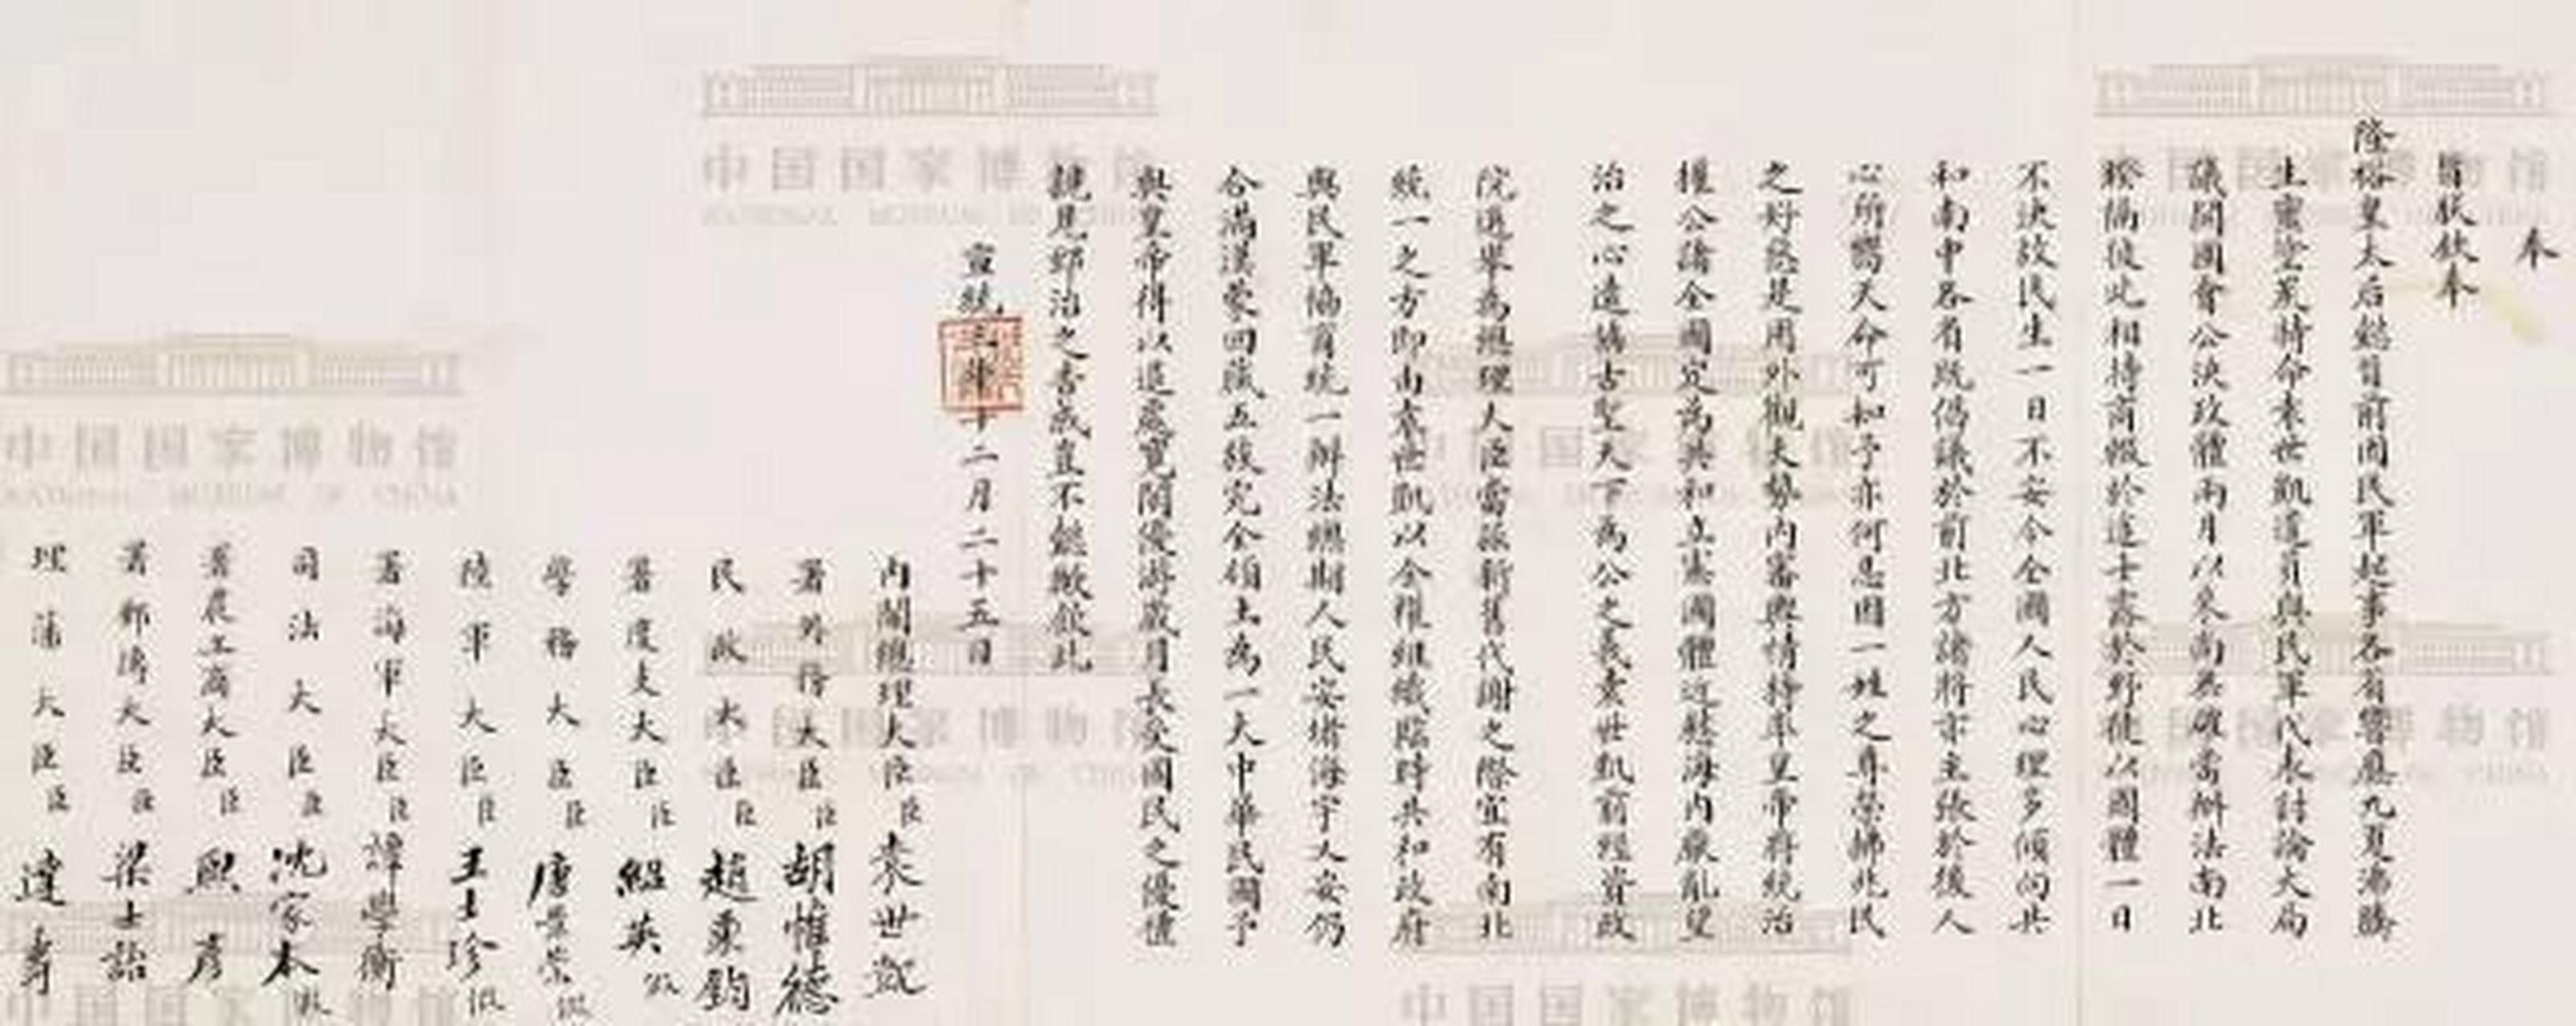 奉
旨朕欽奉
隆裕皇太后懿旨前因民軍起事各省響應九夏沸騰
生靈塗炭特命袁世凱遣員與民軍代表討論大局
議開國會公決政體兩月以來尚無確當辦法南北
暌隔彼此相持商輟於途士露於野徒以國體一日
不決故民生一日不安今全國人民心理多傾向共
和南中各省既倡議於前北方諸將亦主張於後人
心所嚮天命可知予亦何忍因一姓之尊榮拂兆民
之好惡是用外觀大勢內審輿情特率皇帝將統治
權公諸全國定為共和立憲國體近慰海內厭亂望
治之心遠協古聖天下為公之義袁世凱前經資政
院選舉為總理大臣當茲新舊代謝之際宜有南北
統一之方即由袁世凱以全權組織臨時共和政府
與民軍協商統一辦法總期人民安堵海宇乂安仍
合滿漢蒙回藏五族完全領土為一大中華民國予
與皇帝得以退處寬閒優游歲月長受國民之優禮
親見郅治之告成豈不懿歟欽此
宣統三年十二月二十五日
內閣總理大臣臣袁世凱
署外務大臣臣胡惟德
民政大臣臣趙秉鈞
署度支大臣臣紹英 假
學務大臣臣唐景崇 假
陸軍大臣臣王士珍 假
署海軍大臣臣譚學衡
司法大臣臣沈家本 假
署農工商大臣臣熙彥
署郵傳大臣臣梁士詒
理藩大臣臣達壽
中国国家博物馆
NATIONAL MUSEUM OF CHINA